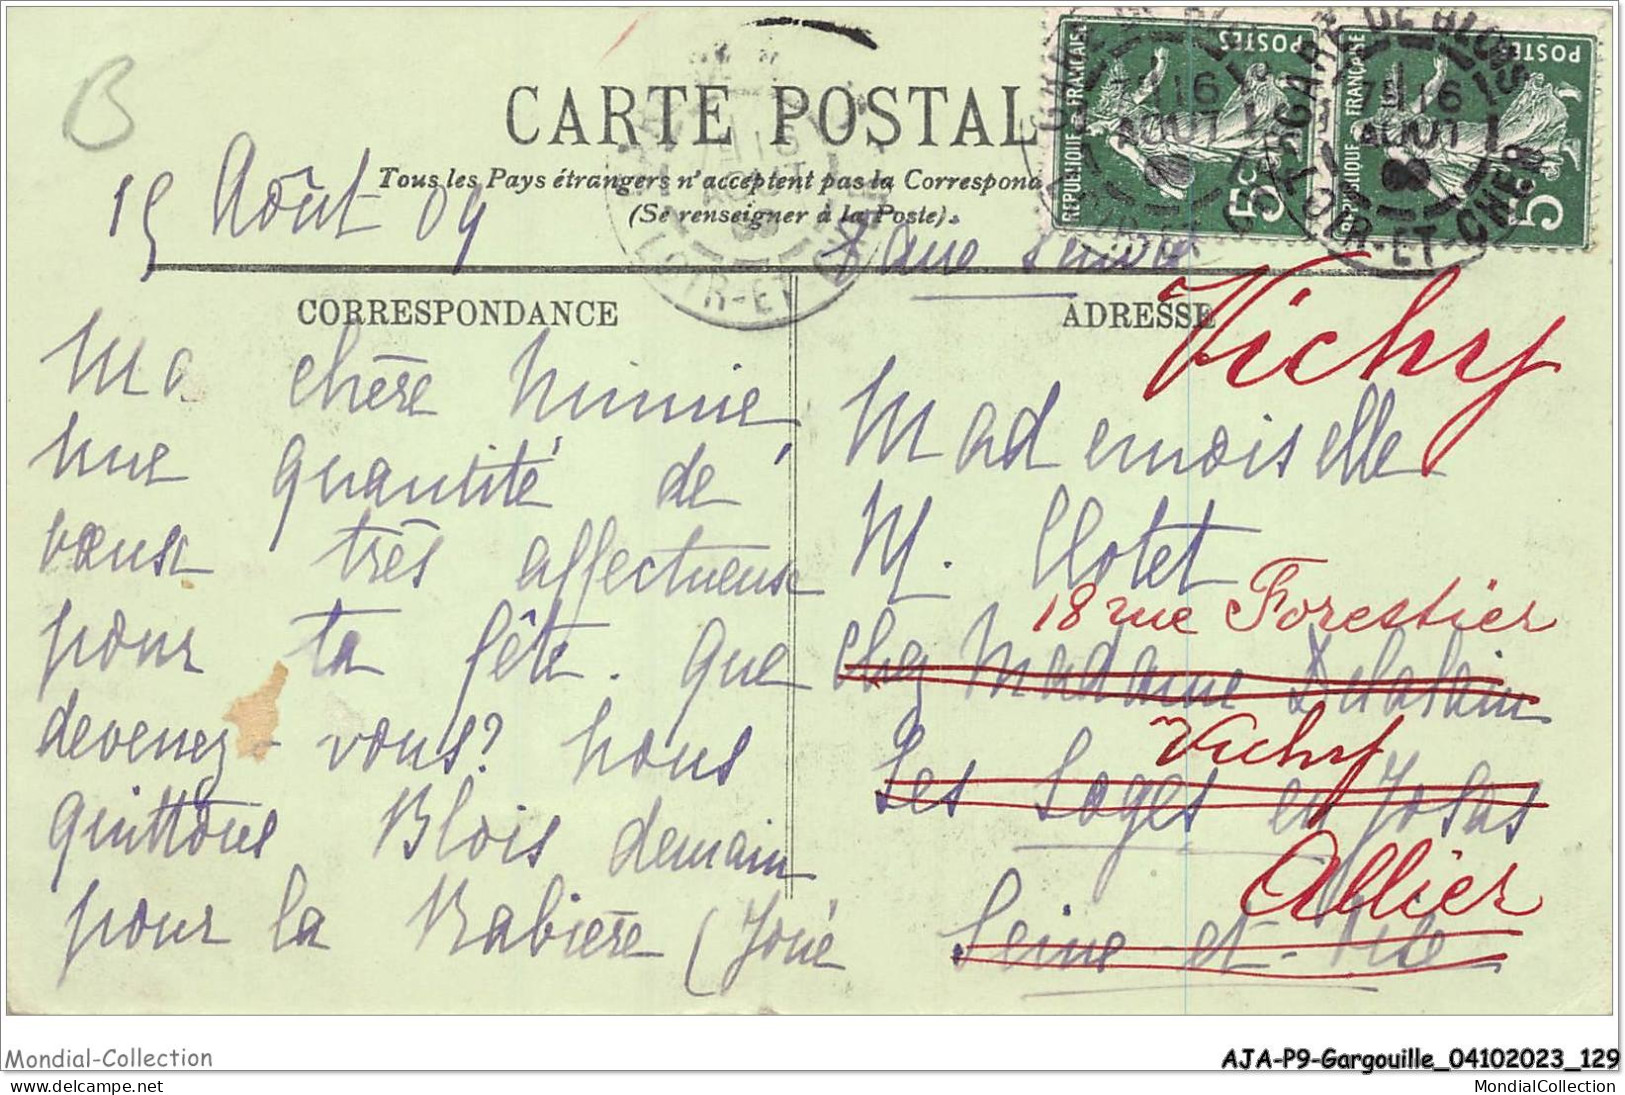 B
CARTE POSTALE
Tous les Pays étrangers n'acceptent pas la Correspond
(Se renseigner à la Poste).
15 Août 09
faire suivre
RÉPUBLIQUE FRANÇAISE
POSTES
5c
RÉPUBLIQUE FRANÇAISE
POSTES
5
GARE DE BLOIS
7 16
AOUT
LOIR-ET-CHER
CORRESPONDANCE
ADRESSE
Ma chère Mimie,
une quantité de
vœux très affectueux
pour ta fête. Que
devenez-vous? Nous
quittons Blois demain
pour la Rabière (Joué
Vichy
Mademoiselle
M. Clotet
18 rue Forestier
Chez Madame Delalain
Vichy
Les Loges en Josas
Allier
Seine-et-Oise
Mondial-Collection
delcampe.net
AJA-P9-Gargouille_04102023_129
MondialCollection